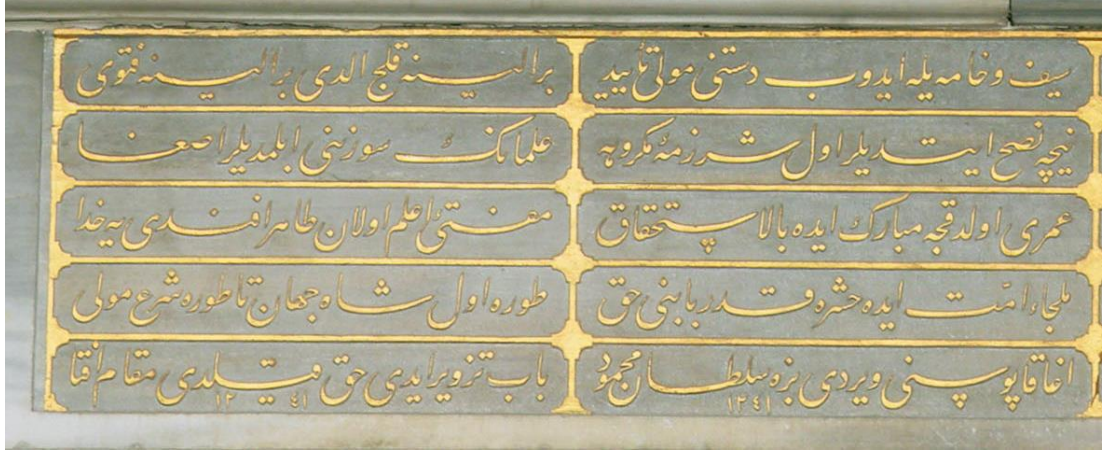 سيف و خامه يله ايدوب دستنى مولى تأييد برالينه قلج الدى برالينه فتوى
نيچه نصح ايتديلر اول شرزمۀ مكروهه علمانك سوزنى ايلمديلر اصغا
عمرى اولدقجه مبارك ايده بالاستحقاق مفتئ اعلم اولان طاهر افندى يه خدا
ملجاء امت ايده حشره قدر بابنى حق طوره اول شاه جهان تا طوره شرع مولى
اغا قاپوسنى ويردى بزه سلطان محمود ١٢٤١ باب تزوير ايدى حق قيلدى مقام افتا ١٢٤١